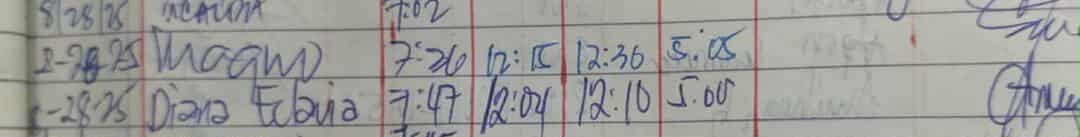 8/28/25 7:02
8-28-25 Magno 7:26 12:15 12:36 5:05
-28-25 Diana 7:47 12:04 12:10 5:00